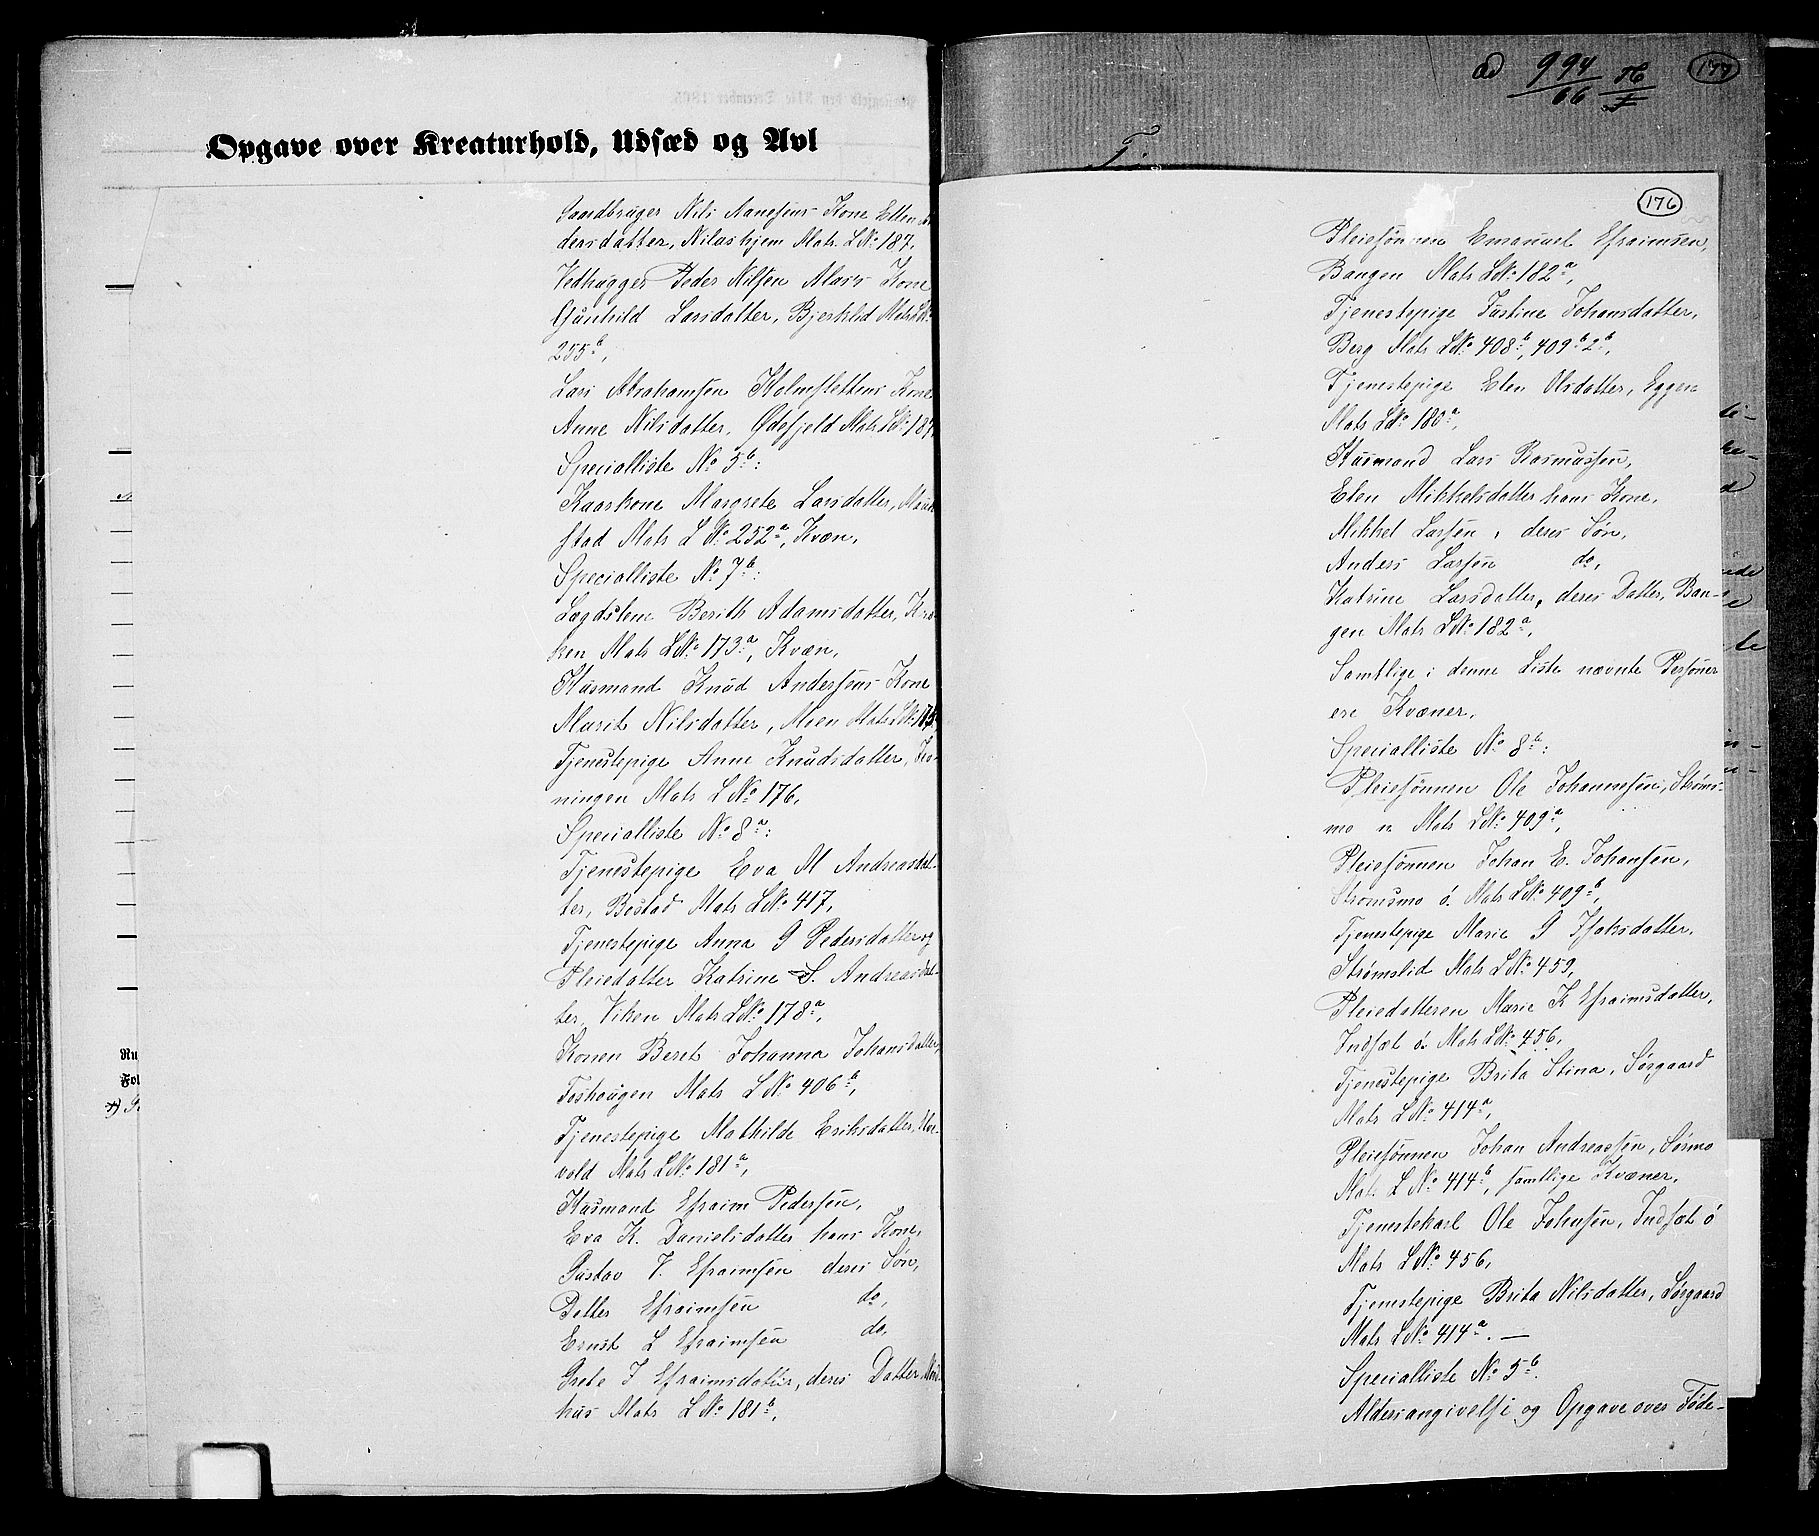 Opgave over Kreaturhold, Udsæd og Avl
Gaardbruger Nils Aanesens Kone Ellen
dersdatter, Nilashjem Matr. LNo 187,
Vedhugger Peder Nilsen Alais Kone
Gunhild Larsdatter, Bjerklid Matr LNo
255b,
Lars Abrahamsen Holmslettens Kone
Anne Nilsdatter, Ødefjeld Matr LNo 187
Specialliste No 5b:
Kaarkone Margrete Larsdatter,
stad Matr LNo 252a, Kvæn,
Specialliste No 7b:
Lægdslem Berith Adamsdatter, Kro-
ken Matr LNo 173a, Kvæn,
Husmand Knud Andersens Kone
Marit Nilsdatter, Moen Matr LNo 175
Tjenestepige Anne Knudsdatter,
ningen Matr LNo 176,
Specialliste No 8a:
Tjenestepige Eva M Andreasdat-
ter, Bostad Matr LNo 417,
Tjenestepige Anna G Pedersdatter og
Pleiedatter Katrine S. Andreasdat-
ter, Viken Matr LNo 178a,
Konen Beret Johanna Johansdatter,
Foshaugen Matr LNo 406b,
Tjenestepige Mathilde Eriksdatter,
vold Matr LNo 181a,
Husmand Efraim Pedersen,
Eva K. Danielsdatter hans Kone,
Gustav V. Efraimsen deres Søn,
Petter Efraimsen do,
Ernst L Efraimsen do,
Grete J Efraimsdatter, deres Datter,
hus Matr LNo 181b,
Ru
Fol
ad 994/66
177
176
Pleiesønnen Emanuel Efraimsen,
Bangen Matr LNo 182a,
Tjenestepige Justine Johansdatter,
Berg Matr LNo 408b, 409b 2b,
Tjenestepige Elen Olsdatter, Eggen
Matr LNo 180a,
Husmand Lars Rasmussen,
Elen Mikkelsdatter hans Kone,
Mikkel Larsen, deres Søn,
Anders Larsen do,
Katrine Larsdatter, deres Datter, Ban-
gen Matr LNo 182a,
Samtlige i denne Liste nævnte Personer
ere Kvæner.
Specialliste No 8b:
Pleiesønnen Ole Johannesen, Strøms-
mo n Matr LNo 409a,
Pleiesønnen Johan E. Johansen,
Strømsmo ø. Matr LNo 409b,
Tjenestepige Marie G Isaksdatter,
Strømslid Matr LNo 459,
Pleiedatteren Marie K Efraimsdatter,
Indset ø. Matr LNo 456,
Tjenestepige Brita Stina, Sørgaard
Matr LNo 414a,
Pleiesønnen Johan Andreassen, Sørmo
Matr LNo 414b, samtlige Kvæner.
Tjenestekarl Ole Johnsen, Indset ø
Matr LNo 456,
Tjenestepige Brita Nilsdatter, Sørgaard
Matr LNo 414a. —
Specialliste No 5b.
Aldersangivelse og Opgave over Føde-